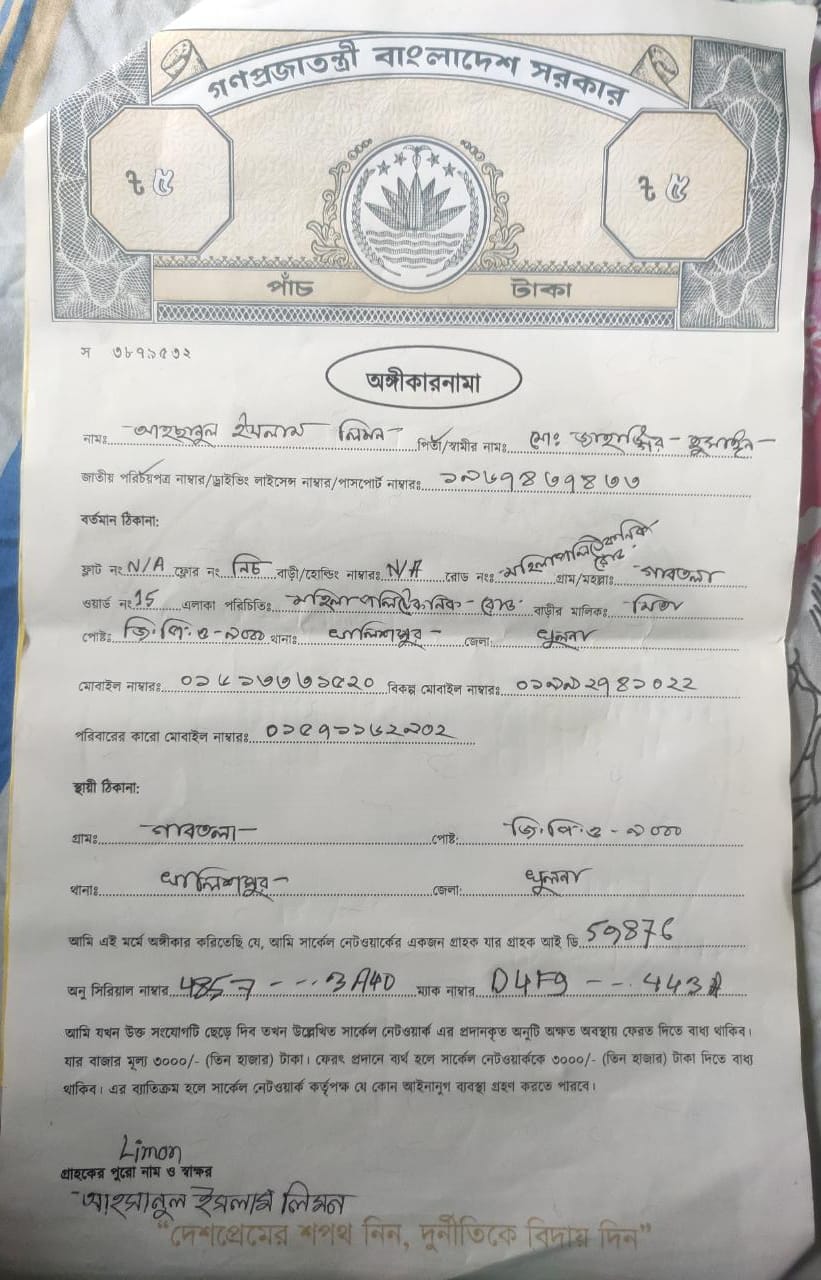 গণপ্রজাতন্ত্রী বাংলাদেশ সরকার
৳ ৫ ৳ ৫
পাঁচ টাকা
স ৩৮৭১৫৩২
অঙ্গীকারনামা
নামঃ আহছানুল ইসলাম লিমন পিতা/স্বামীর নামঃ মোঃ জাহাঙ্গির হুসাইন
জাতীয় পরিচয়পত্র নাম্বার/ড্রাইভিং লাইসেন্স নাম্বার/পাসপোর্ট নাম্বারঃ
বর্তমান ঠিকানা:
ফ্লাট নং N/A ফ্লোর নং নিচ বাড়ী/হোল্ডিং নাম্বারঃ N/A রোড নংঃ মহিলা পলিটেকনিক রোড গ্রাম/মহল্লাঃ গাবতলা
ওয়ার্ড নং 15 এলাকা পরিচিতিঃ মহিলা পলিটেকনিক রোড বাড়ীর মালিকঃ
পোষ্টঃ জি.পি.ও - ৯০০০ থানাঃ খালিশপুর জেলা: খুলনা
মোবাইল নাম্বারঃ বিকল্প মোবাইল নাম্বারঃ
পরিবারের কারো মোবাইল নাম্বারঃ
স্থায়ী ঠিকানা:
গ্রামঃ গাবতলা পোষ্ট: জি.পি.ও - ৯০০০
থানাঃ খালিশপুর জেলা: খুলনা
আমি এই মর্মে অঙ্গীকার করিতেছি যে, আমি সার্কেল নেটওয়ার্কের একজন গ্রাহক যার গ্রাহক আই ডি 59876
অনু সিরিয়াল নাম্বার 4857 --- 3A40 ম্যাক নাম্বার D4F9 --- 443A
আমি যখন উক্ত সংযোগটি ছেড়ে দিব তখন উল্লেখিত সার্কেল নেটওয়ার্ক এর প্রদানকৃত অনুটি অক্ষত অবস্থায় ফেরত দিতে বাধ্য থাকিব।
যার বাজার মূল্য ৩০০০/- (তিন হাজার) টাকা। ফেরৎ প্রদানে ব্যর্থ হলে সার্কেল নেটওয়ার্ককে ৩০০০/- (তিন হাজার) টাকা দিতে বাধ্য
থাকিব। এর ব্যতিক্রম হলে সার্কেল নেটওয়ার্ক কর্তৃপক্ষ যে কোন আইনানুগ ব্যবস্থা গ্রহণ করতে পারবে।
Limon
গ্রাহকের পুরো নাম ও স্বাক্ষর
আহসানুল ইসলাম লিমন
“দেশপ্রেমের শপথ নিন, দুর্নীতিকে বিদায় দিন”